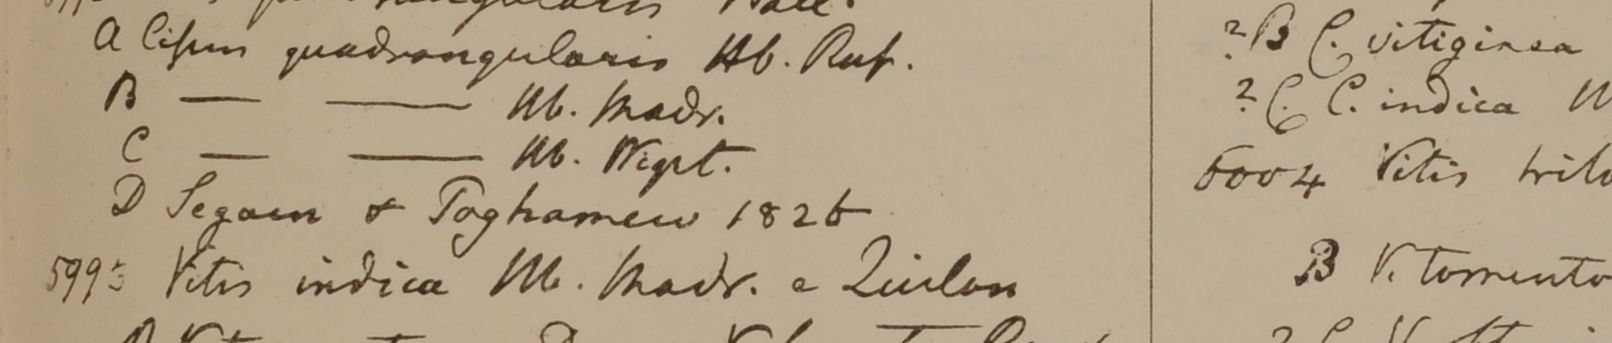 quadrangularis Wall.
A Cissus quadrangularis Hb. Rux.
B — — Hb. Madr.
C — — Hb. Wight.
D Segaen & Toghamew 1826
599 Vitis indica Hb. Madr. e Quilon
?B C. vitiginea
?C. C. indica
6004 Vitis trilo
B V. tomento